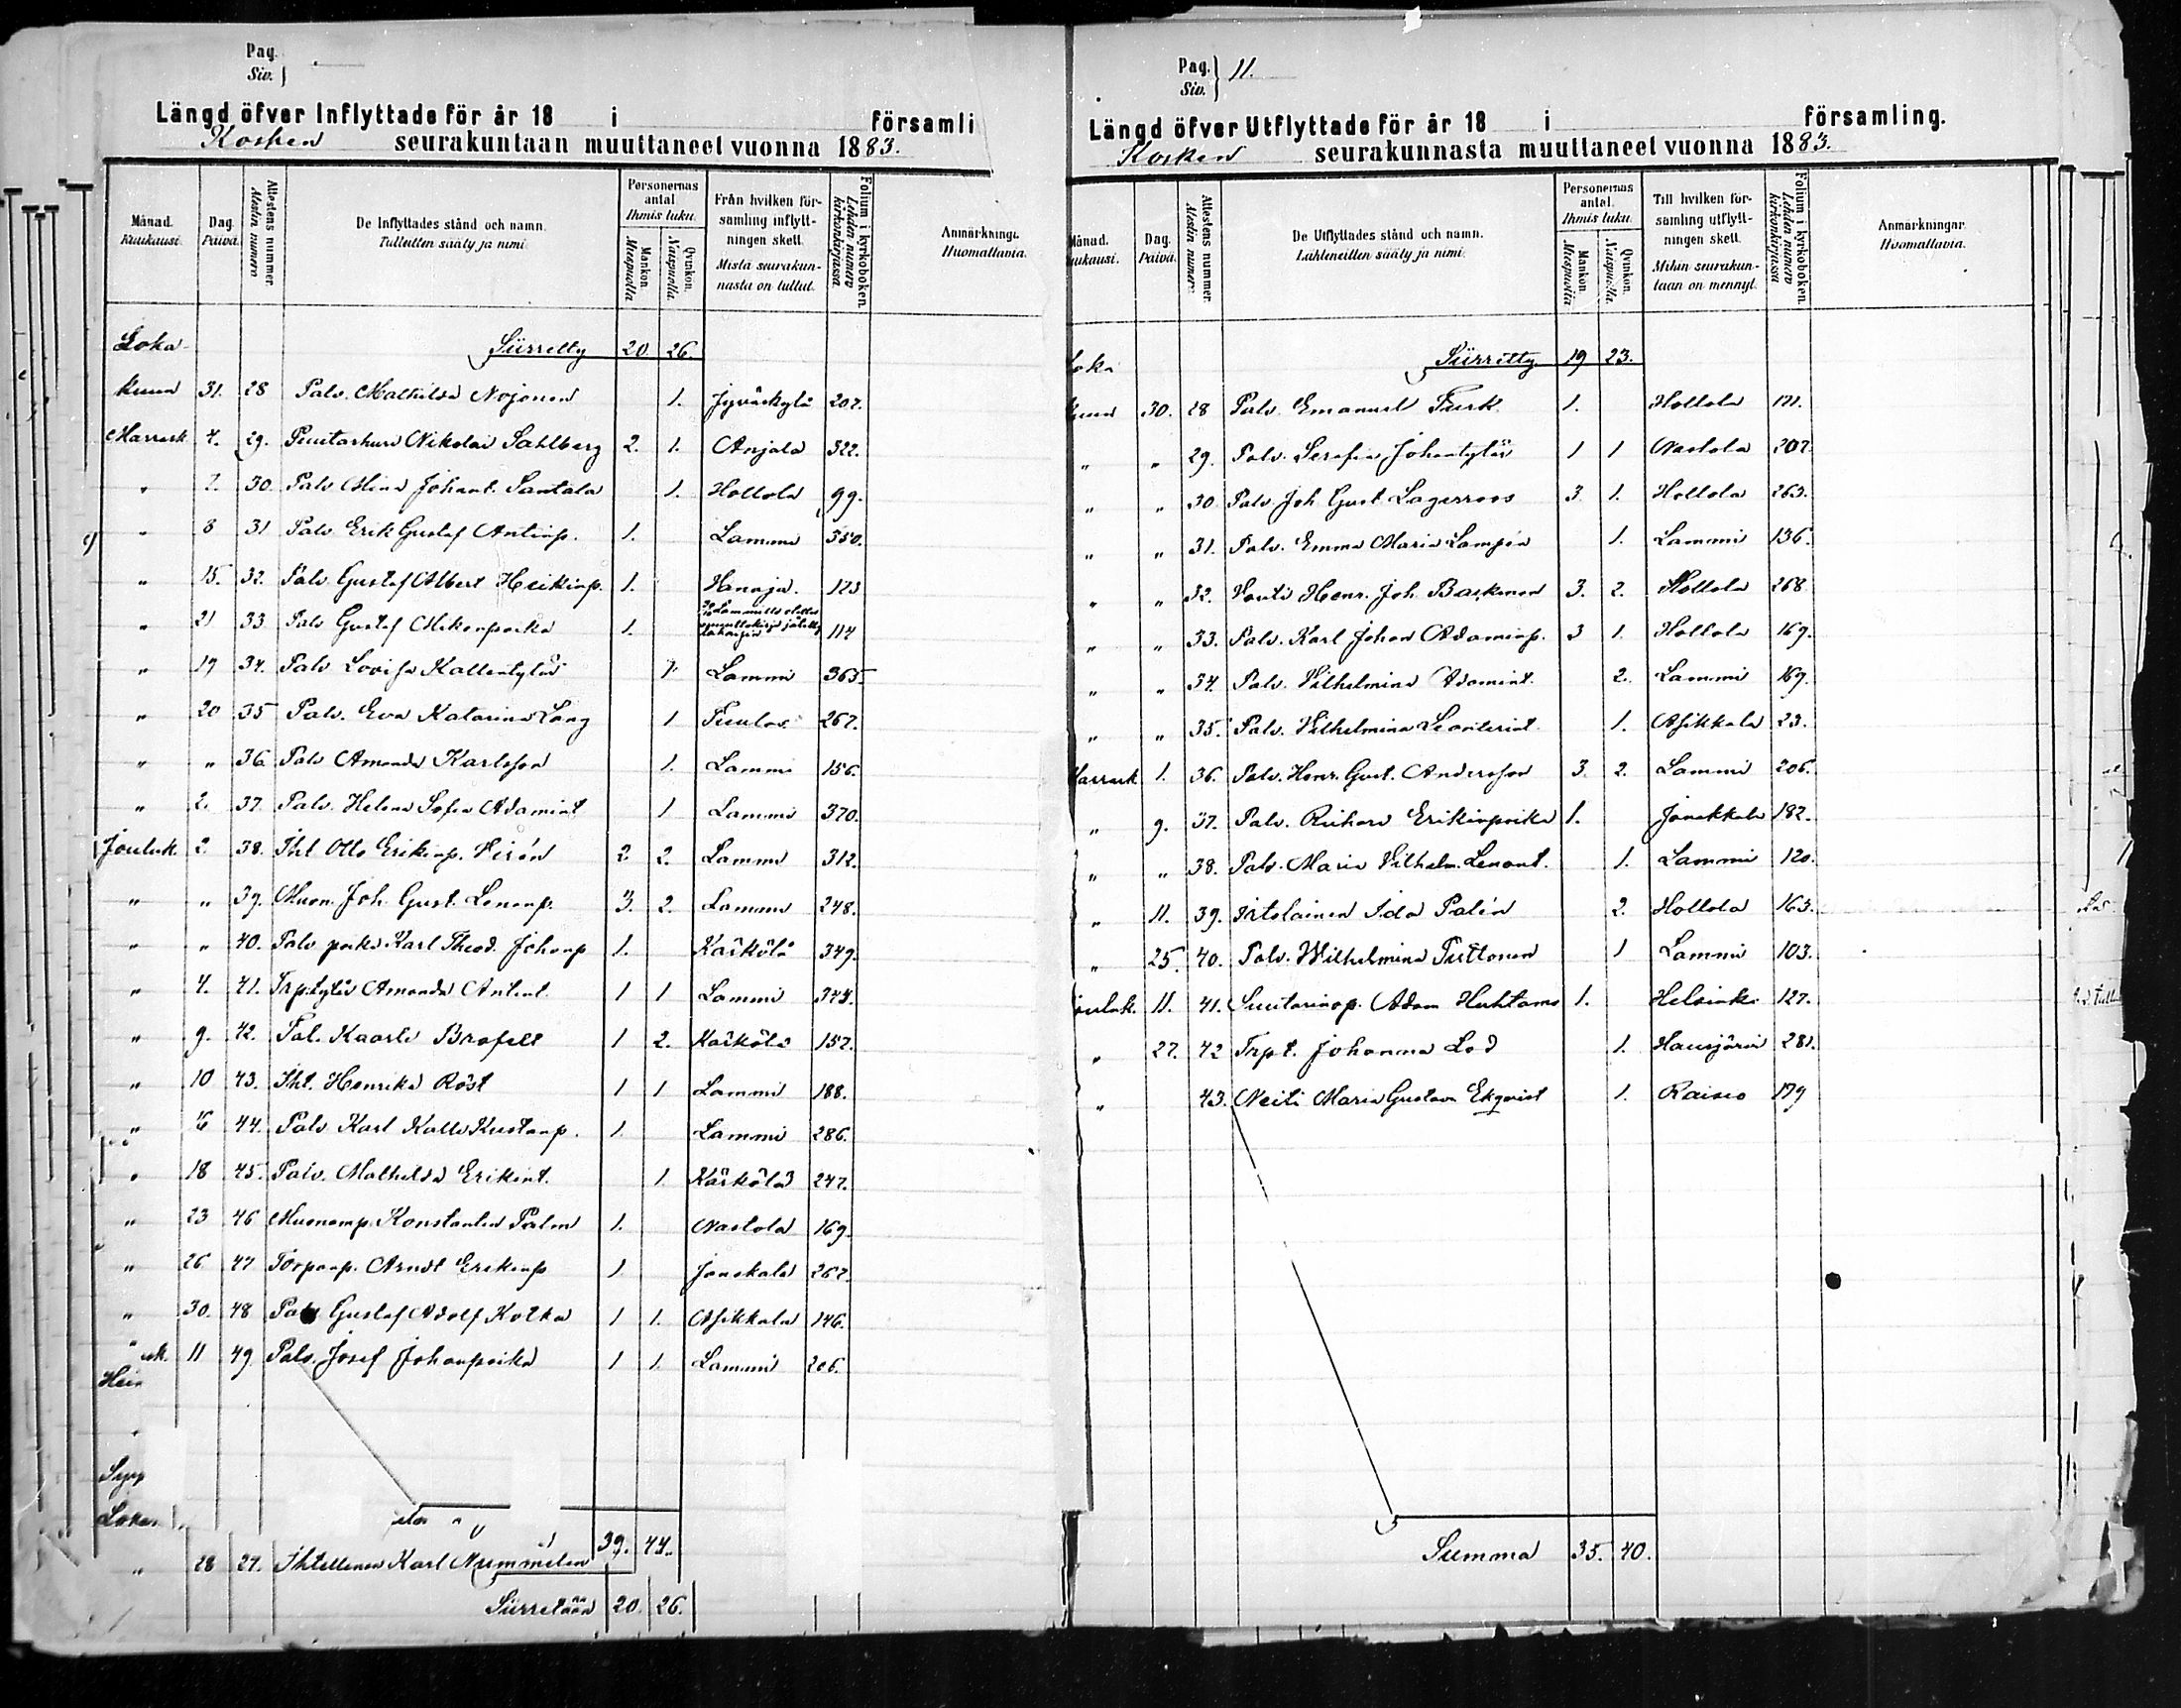 Pag.
Siv.
Längd öfver Inflyttade för år 18 i församli
Kosken seurakuntaan muuttaneet vuonna 1883.
Månad. Kuukausi. Dag. Päivä. Attestens nummer. Alestin numero De Inflyttades stånd och namn. Tulleitten sääty ja nimi. Personernas antal Ihmis luku. Mankön. Miespuolia Qvinkön. Naispuolia. Från hvilken församling inflyttningen skett. Mistä seurakunnasta on tullut. Folium i kyrkoboken. Lehden numero kirkonkirjassa Anmärkningar Huomattavia.
Loka Siirretty 20 26.
kuun 31. 28 Palv. Mathilda Nojonen 1. Jyväskylä 207.
Marrask 7. 29. Puutarhuri Nikolai Sahlberg 2. 1. Anjala 322.
" 7. 30. Palv Miina Johant. Santala 1. Hollola 99.
" 8 31 Palv Erik Gustaf Antinp. 1. Lammi 350.
" 15. 32. Palv Gustaf Albert Heikinp. 1. Hauoja. 123
" 21 33. Palv Gustaf Mikonpoika 1. 114
" 19 34. Palv Lovisa Kallentytär 1. Lammi 365.
" 20 35 Palv. Eva Katarina Lang 1 Tuulos 267.
" " 36. Palv Amanda Karlsson 1. Lammi 156.
" 2. 37. Palv. Helena Sofia Adamint 1 Lammi 370.
Jouluk. 2. 38. Iht Otto Erikinp. Virén 2 2. Lammi 312.
" " 39. Muon. Joh. Gust. Lenanp. 3. 2. Lammi 248.
" " 40. Palv poika Karl Theod. Johanp 1. Kärkölä 349.
" 4. 41. Trp.tytär Amanda Antint. 1 1 Lammi 344.
" 9. 42. Pal. Kaarle Brofelt 1 2. Kärkölä 157.
" 10 43. Iht. Henrika Röst 1 1 Lammi 188.
" 16 44. Palv Karl Kalle Kustanp. 1. Lammi 286.
" 18 45. Palv. Mathilda Erikint. 1 Kärkölä 247.
" 23 46 Muonamp. Konstantin Palm 1. Nastola 169.
" 26 47 Torpanp. Arndt Erikinp 1. Janakala 267.
" 30. 48 Palv Gustaf Adolf Kotka 1 1. Asikkala 146.
" sk. 11 49 Palv. Josef Johanpoika 1 1. Lammi 206.
Hein
Syys
Loka
39. 44.
" 28 27. Ihtellinen Karl Nummelin
Siirretään 20. 26.
Pag.
Siv. 11.
Längd öfver Utflyttade för år 18 i församling.
Kosken seurakunnasta muuttaneet vuonna 1883.
Månad. Kuukausi. Dag. Päivä. Attestens nummer. Alestin numero De Utflyttades stånd och namn. Lähteneitten sääty ja nimi. Personernas antal. Ihmis luku. Mankön. Miespuolia Qvinkön. Naispuolia. Till hvilken församling utflyttningen skett. Mihin seurakuntaan on mennyt. Folium i kyrkoboken. Lehden numero kirkonkirjassa Anmärkningar. Huomattavia.
Loka Siirretty 19 23.
kuun 30. 28 Palv Emanuel Turk 1. Hollola 171.
" " 29. Palv. Serafia Johantytär 1 1 Nastola 207.
" " 30 Palv Joh Gust. Lagerroos 3. 1. Hollola 263.
" " 31. Palv. Emma Maria Lampén 1. Lammi 136.
" " 32. Vouti Henr. Joh. Backman 3. 2. Hollola 268.
" " 33. Palv. Karl Johan Adaminp. 3 1. Hollola 169.
" " 34. Palv. Vilhelmina Adamint. 2. Lammi 169.
" " 35. Palv. Vilhelmina Leanterint 1. Asikkala 23.
Marrask 1. 36. Palv. Henr. Gust. Andersson 3. 2. Lammi 206.
" 9. 37. Palv. Richard Erikinpoika 1. Janakkala 182.
" " 38. Palv. Maria Vilhelm. Lenant. 1. Lammi 120.
" 11. 39. Irtolainen Ida Palén 2. Hollola 163.
" 25. 40. Palv. Wilhelmina Tuttonen 1 Lammi 103.
Jouluk. 11. 41. Suutarinop. Adam Huhtamo 1. Helsinki 127.
" 27. 42 Trp t. Johanna Lod 1. Hausjärvi 281.
" 43. Neiti Maria Gustava Ekqvist 1. Raisio 179
Summa 35. 40.